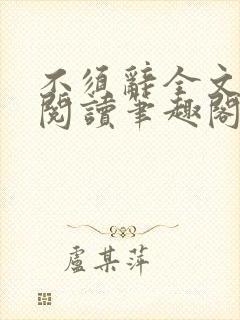 不須辭全文
閱讀筆趣閣
盧某萍